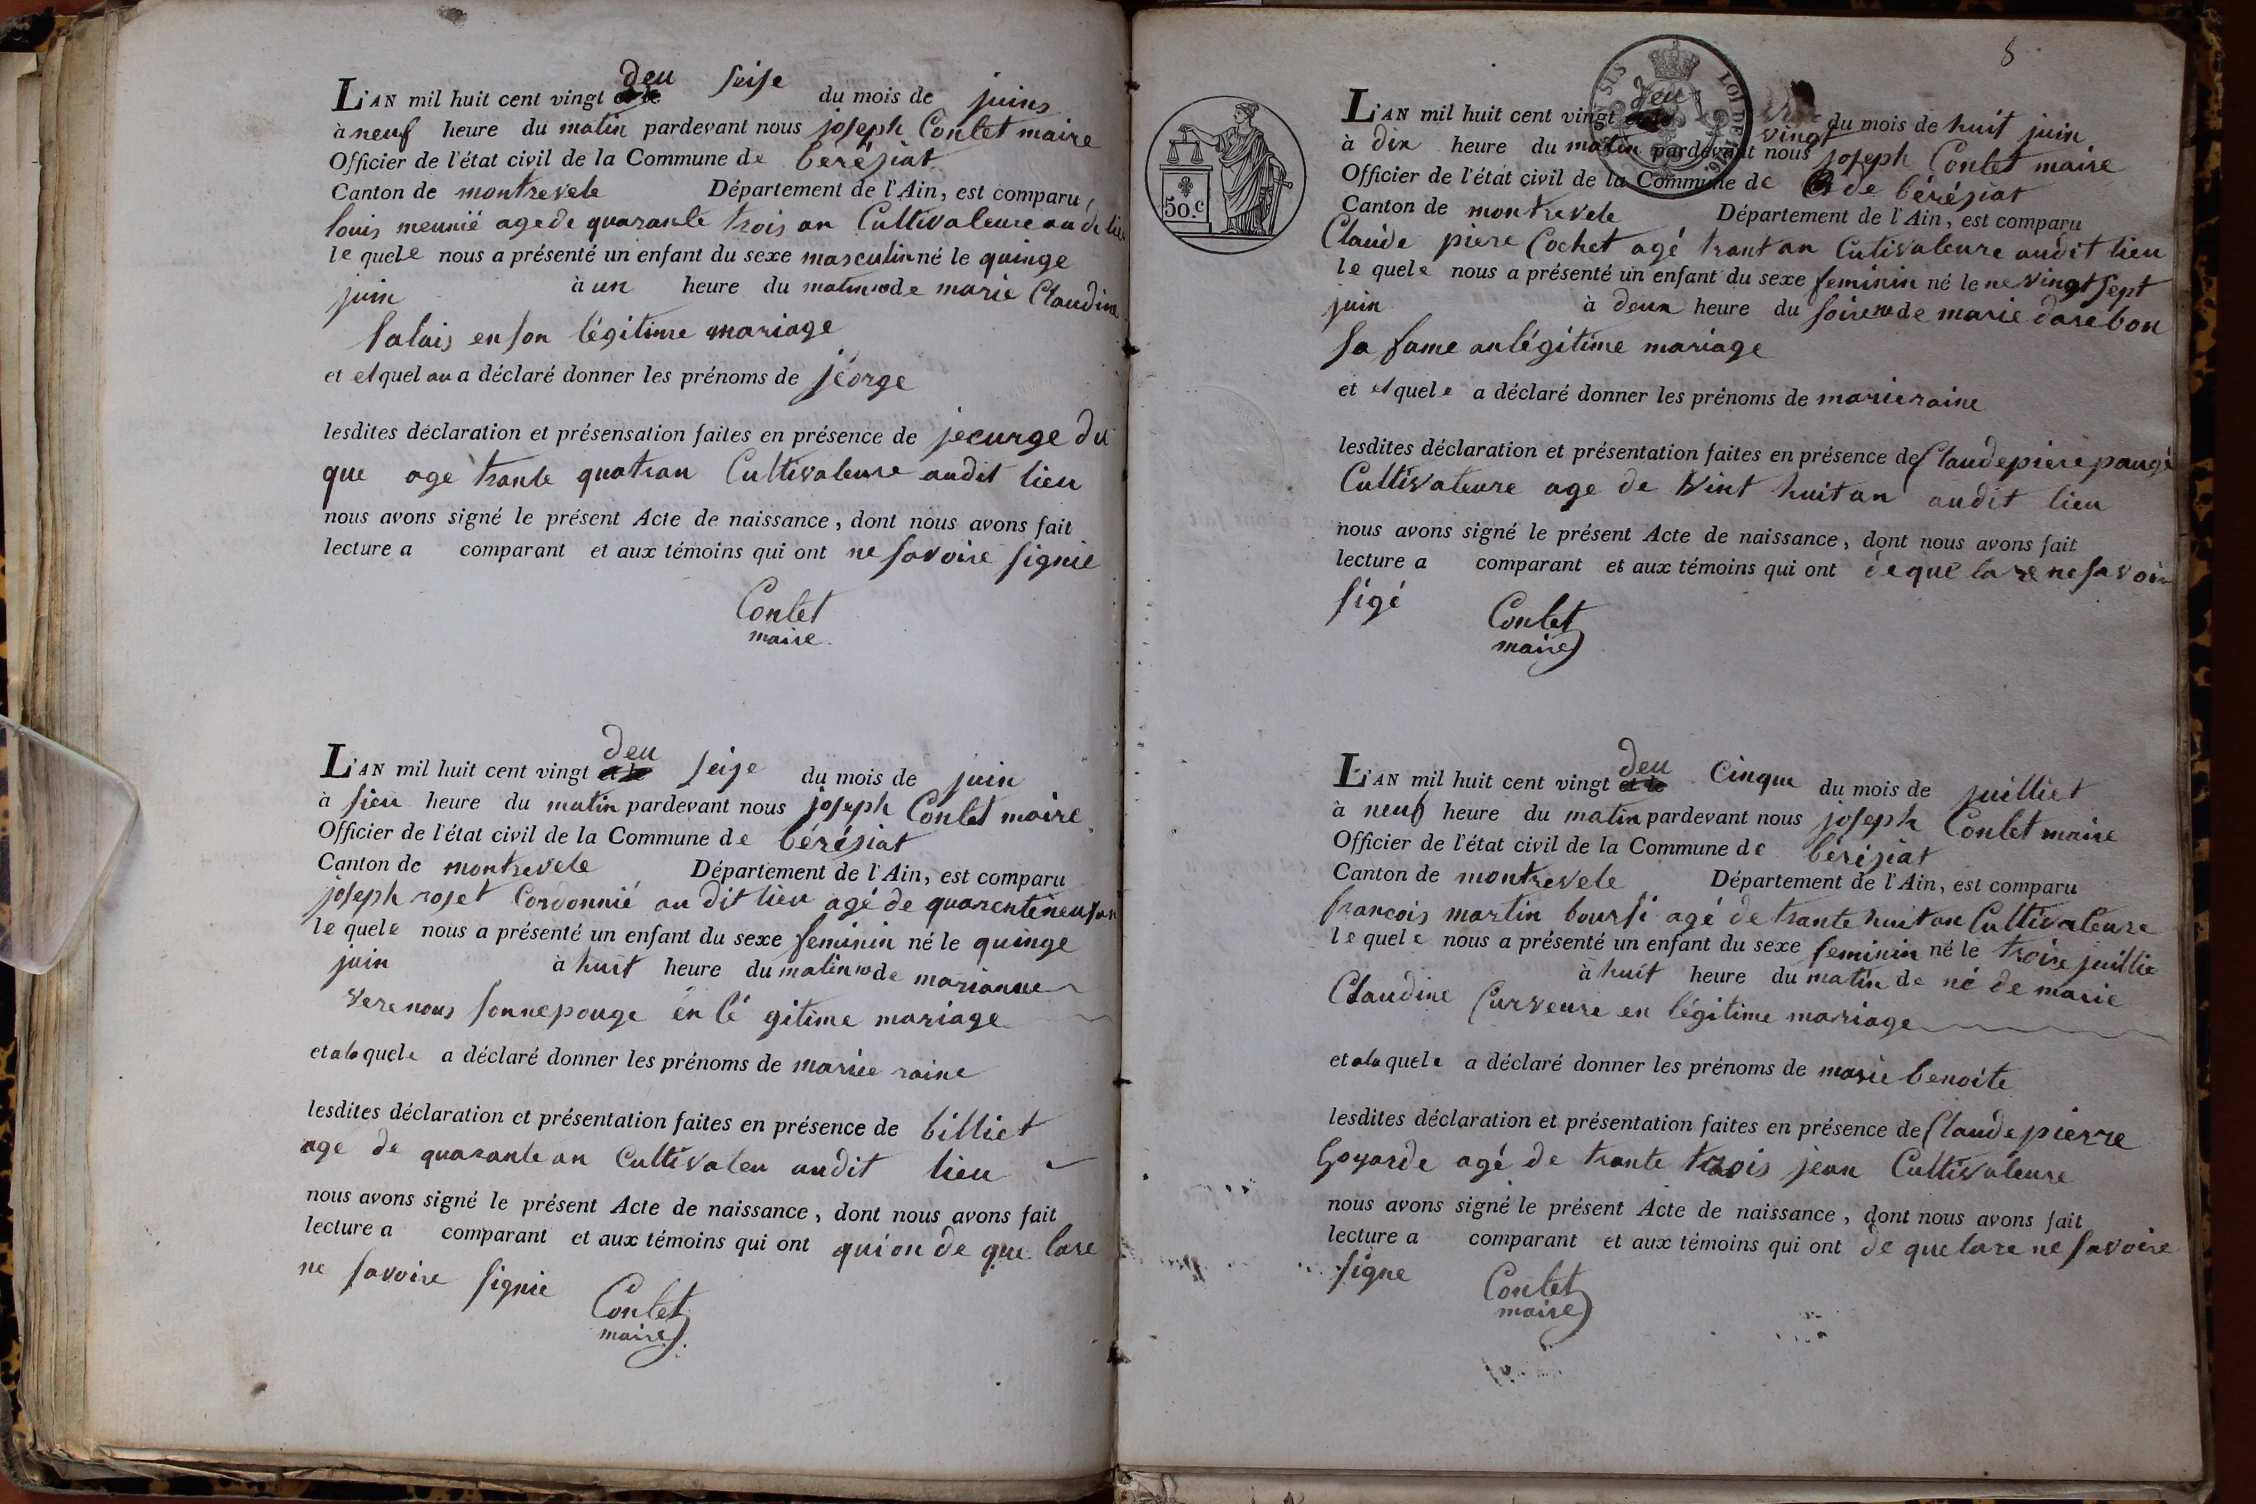 L'AN mil huit cent vingt deu seise du mois de juins
à neuf heure du matin pardevant nous joseph Contet maire
Officier de l'état civil de la Commune de berésiat
Canton de montrevele Département de l'Ain, est comparu
louis meunié age de quarante trois an Cultivateure au de lieu
le quele nous a présenté un enfant du sexe masculin né le quinze
juin à un heure du matin de marie Claudine
salais en son légitime mariage
et et quel au a déclaré donner les prénoms de jéorge
lesdites déclaration et présensation faites en présence de jeeurge du
que age trante quatran Cultivateure audit lieu
nous avons signé le présent Acte de naissance, dont nous avons fait
lecture a comparant et aux témoins qui ont ne savoire signie
Contet
maire
L'AN mil huit cent vingt deu seise du mois de juin
à sieu heure du matin pardevant nous joseph Contet maire
Officier de l'état civil de la Commune de bérésiat
Canton de montrevele Département de l'Ain, est comparu
joseph roset Cordonnié au dit lieu agé de quarenteneufan
le quele nous a présenté un enfant du sexe feminin né le quinge
juin à huit heure du matin de marianne
verenous sonnepouge en lé gitime mariage
et ala quele a déclaré donner les prénoms de mariee raine
lesdites déclaration et présentation faites en présence de billiet
age de quarante an Cultivateu audit lieu
nous avons signé le présent Acte de naissance, dont nous avons fait
lecture a comparant et aux témoins qui ont qui on de que lare
ne savoire signie
Contet
maire
8
50.c
LOI DE 1816
L'AN mil huit cent vingt deu vingt du mois de huit juin
à dix heure du matin pardevant nous joseph Contet maire
Officier de l'état civil de la Commune de de bérésiat
Canton de montrevele Département de l'Ain, est comparu
Claude piere Cochet agé trant an Cutivateure audit lieu
le quele nous a présenté un enfant du sexe feminin né le ne vingt sept
juin à deux heure du soire de marie darébon
sa fame an légitime mariage
et et quele a déclaré donner les prénoms de marie raine
lesdites déclaration et présentation faites en présence de Claude piere pougé
Cultivateure age de vint huit an audit lieu
nous avons signé le présent Acte de naissance, dont nous avons fait
lecture a comparant et aux témoins qui ont de que lare ne savoir
sigé
Contet
maire
L'AN mil huit cent vingt deu Cinque du mois de juilliet
à neuf heure du matin pardevant nous joseph Contet maire
Officier de l'état civil de la Commune de bérésiat
Canton de montrevele Département de l'Ain, est comparu
francois martin boursi agé de trante huit an Cultivateure
le quele nous a présenté un enfant du sexe feminin né le troise juillie
à huit heure du matin de né de marie
Claudine Curveure en légitime mariage
et ala quele a déclaré donner les prénoms de marie benoite
lesdites déclaration et présentation faites en présence de Claude pierre
Goyarde agé de trante trois jean Cultivateure
nous avons signé le présent Acte de naissance, dont nous avons fait
lecture a comparant et aux témoins qui ont de que lare ne savoire
signe
Contet
maire